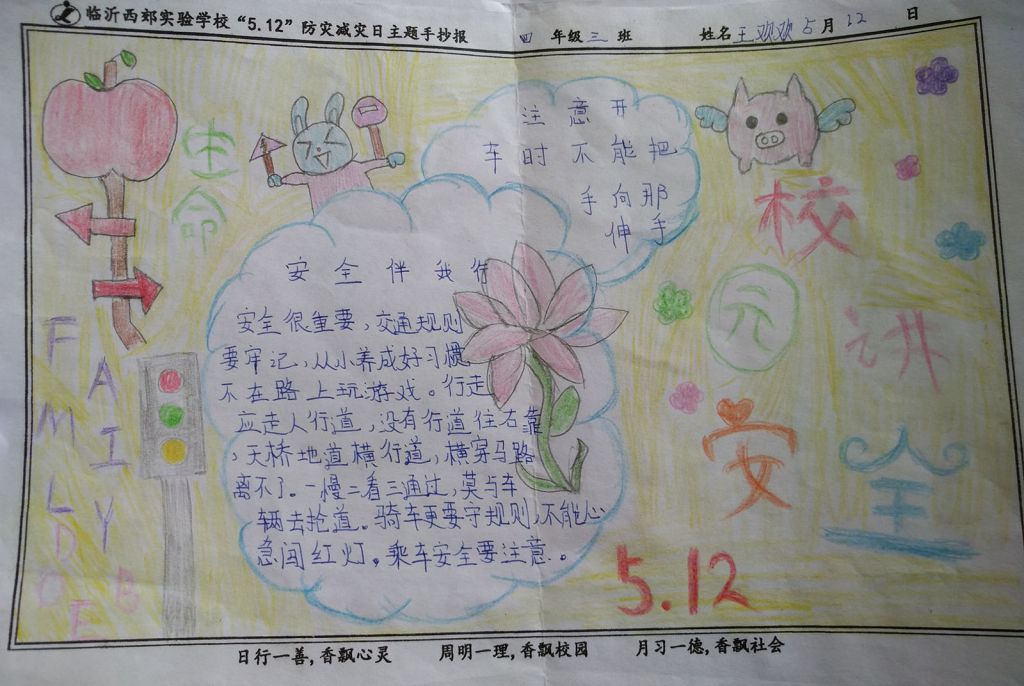 临沂西郊实验学校“5.12”防灾减灾日主题手抄报 四 年级 三 班 姓名 王欢欢 5 月 12 日
生命
注意开
车时不能把
手向那
伸手
校
元
讲
安
全
5.12
安全伴我行
安全很重要,交通规则
要牢记,从小养成好习惯
不在路上玩游戏。行走
应走人行道,没有行道往右靠
,天桥地道横行道,横穿马路
离不了。一慢二看三通过,莫与车
辆去抢道。骑车更要守规则,不能心
急闯红灯。乘车安全要注意。
FAMILY
日行一善,香飘心灵 周明一理,香飘校园 月习一德,香飘社会